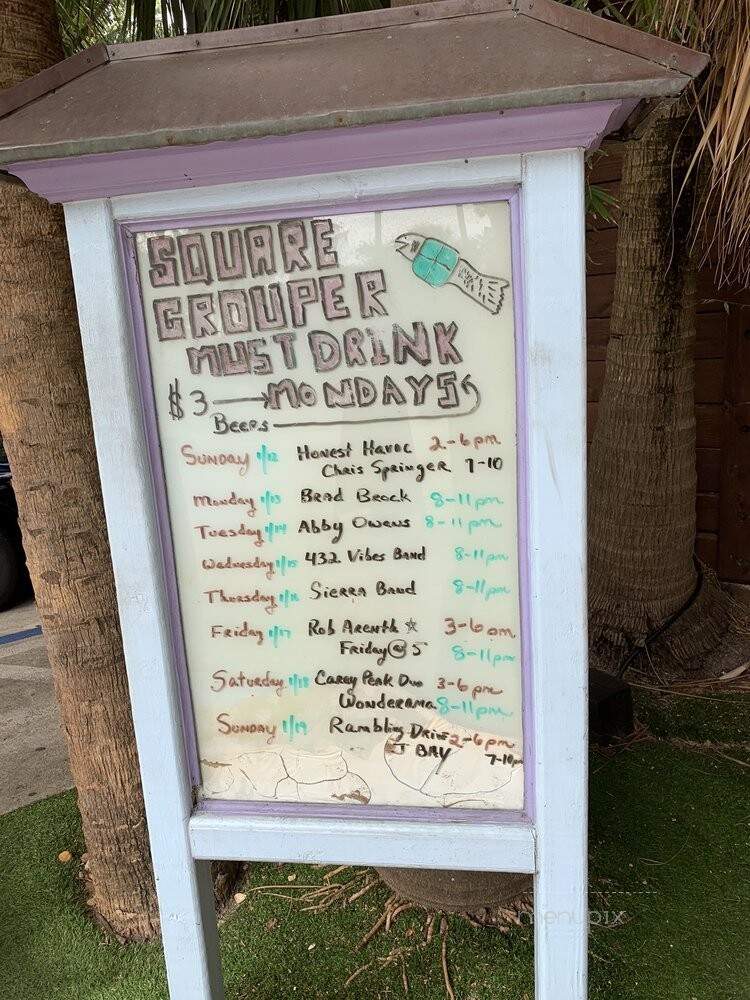 SQUARE
GROUPER
MUST DRINK
$3 → MONDAYS
Beers
Sunday 1/12 Honest Havoc 2-6pm
Chris Springer 7-10
Monday 1/13 Brad Brock 8-11pm
Tuesday 1/14 Abby Owens 8-11pm
Wednesday 1/15 432 Vibes Band 8-11pm
Thursday 1/16 Sierra Band 8-11pm
Friday 1/17 Rob Arenth ☆ 3-6pm
Friday@5 8-11pm
Saturday 1/18 Carey Peak Duo 3-6pm
Wonderama 8-11pm
Sunday 1/19 Rambling 2-6pm
J BAY 7-10pm
menupix